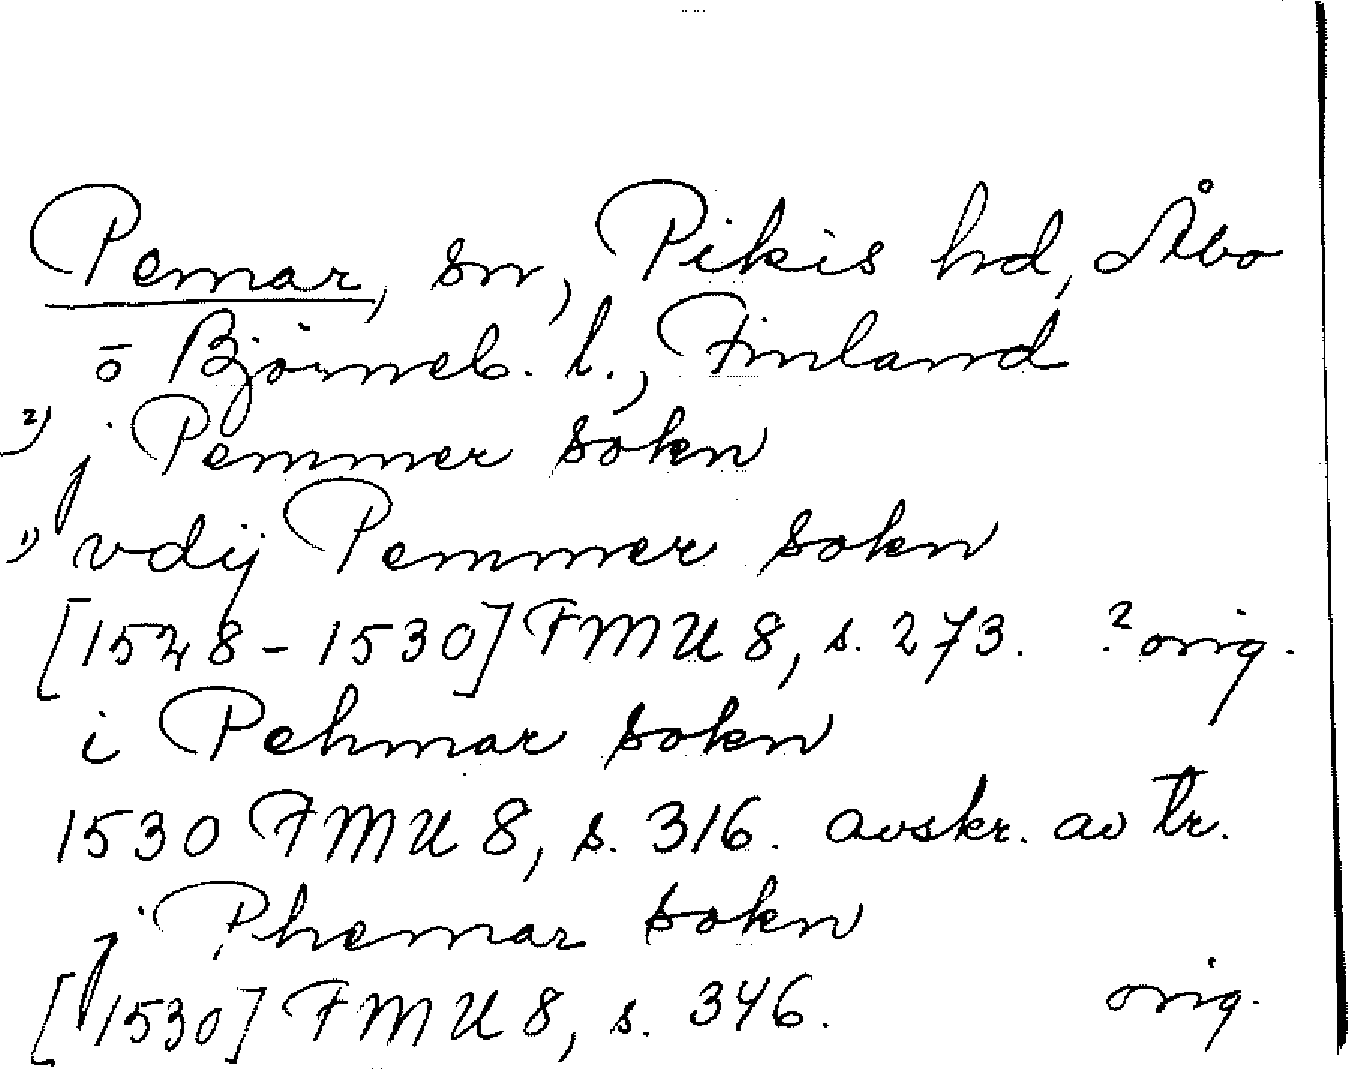 Pemar, sn, Pikis hd, Åbo
o Björneb. l., Finland
2) j Pemmer sokn
1) vdij Pemmer sokn
[1528-1530] FMU 8, s. 273. ? orig.
i Pehmar sokn
1530 FMU 8, s. 316. avskr. av tr.
j Phemar sokn
[1530] FMU 8, s. 346. orig.